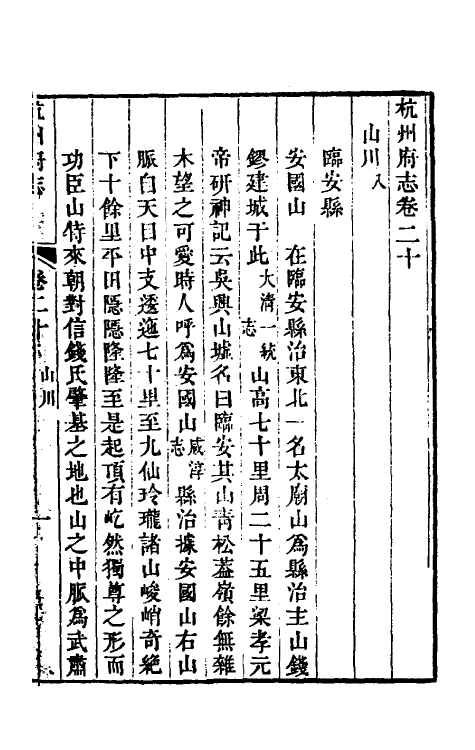 杭州府志卷二十
山川八
臨安縣
安國山　在臨安縣治東北一名太廟山爲縣治主山錢
鏐建城于此大清一統志山高七十里周二十五里梁孝元
帝研神記云吳興山墟名曰臨安其山靑松蓋嶺餘無雜
木望之可愛時人呼爲安國山咸淳志縣治據安國山右山
脈自天目中支透迤七十里至九仙玲瓏諸山峻峭奇絶
下十餘里平田隱隱隆隆至是起頂有屹然獨尊之形而
功臣山特來朝對信錢氏肇基之地也山之中脈爲武肅
杭州府志
卷二十
山川
一